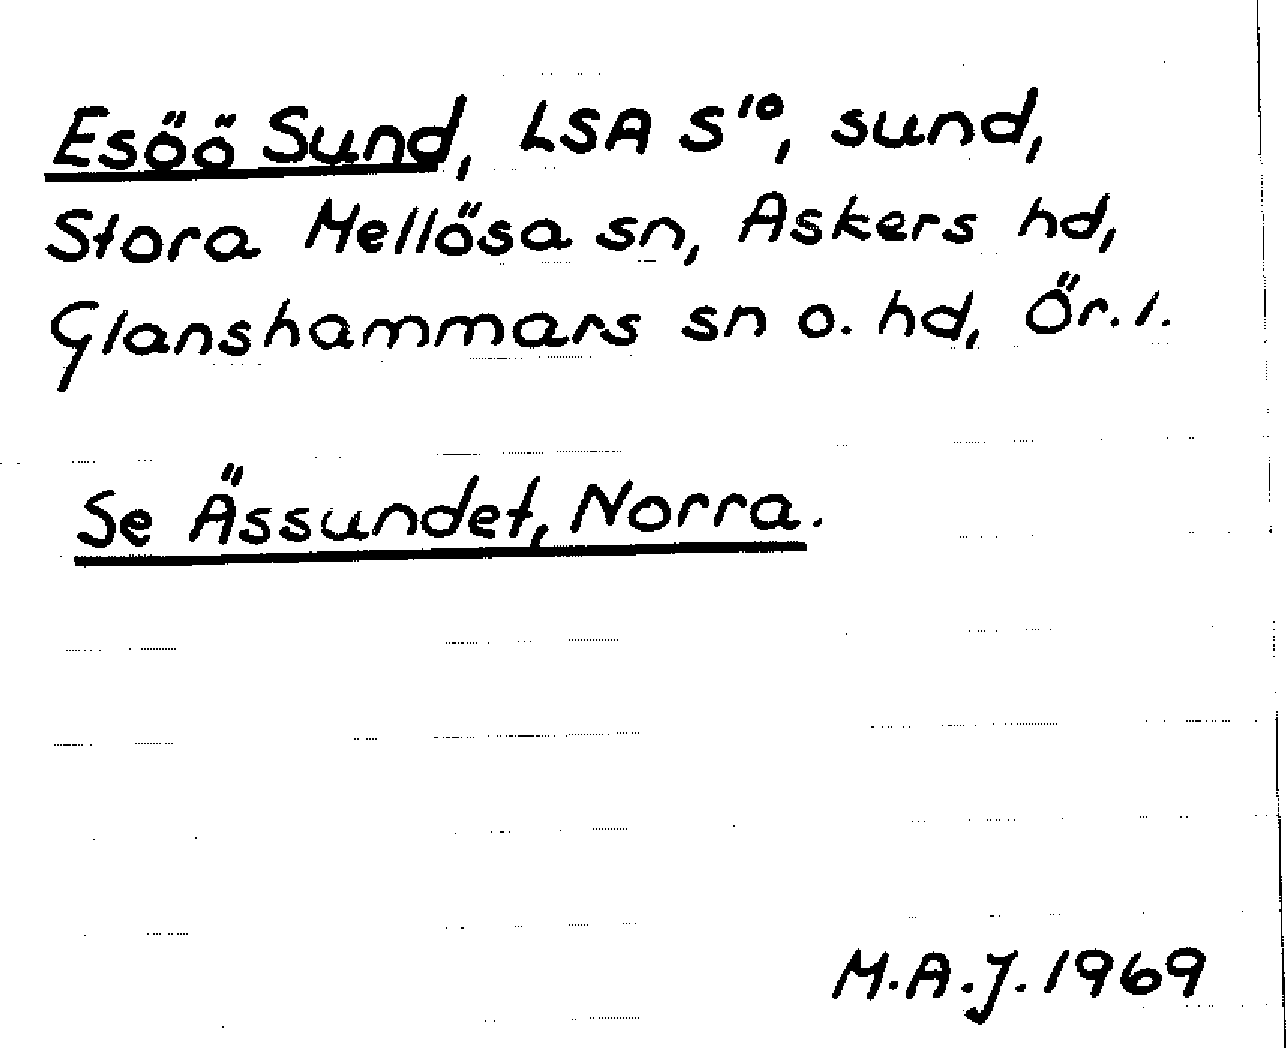 Esöö Sund, LSA S¹⁰, sund,
Stora Mellösa sn, Askers hd,
Glanshammars sn o. hd, Ör. l.
Se Ässundet, Norra.
M.A.J. 1969